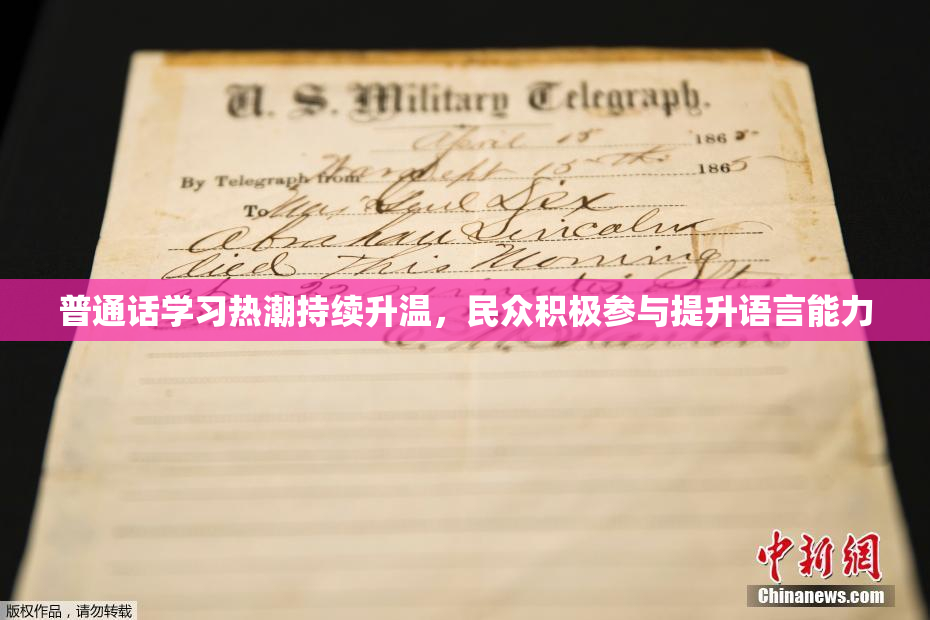 U. S. Military Telegraph.
April 15 1865
By Telegraph from War Dept 15th 1865
To Maj Genl Dix
Abraham Lincoln
died This Morning
22 minutes after
普通话学习热潮持续升温，民众积极参与提升语言能力
Stanton
中新网
Chinanews.com
版权作品，请勿转载